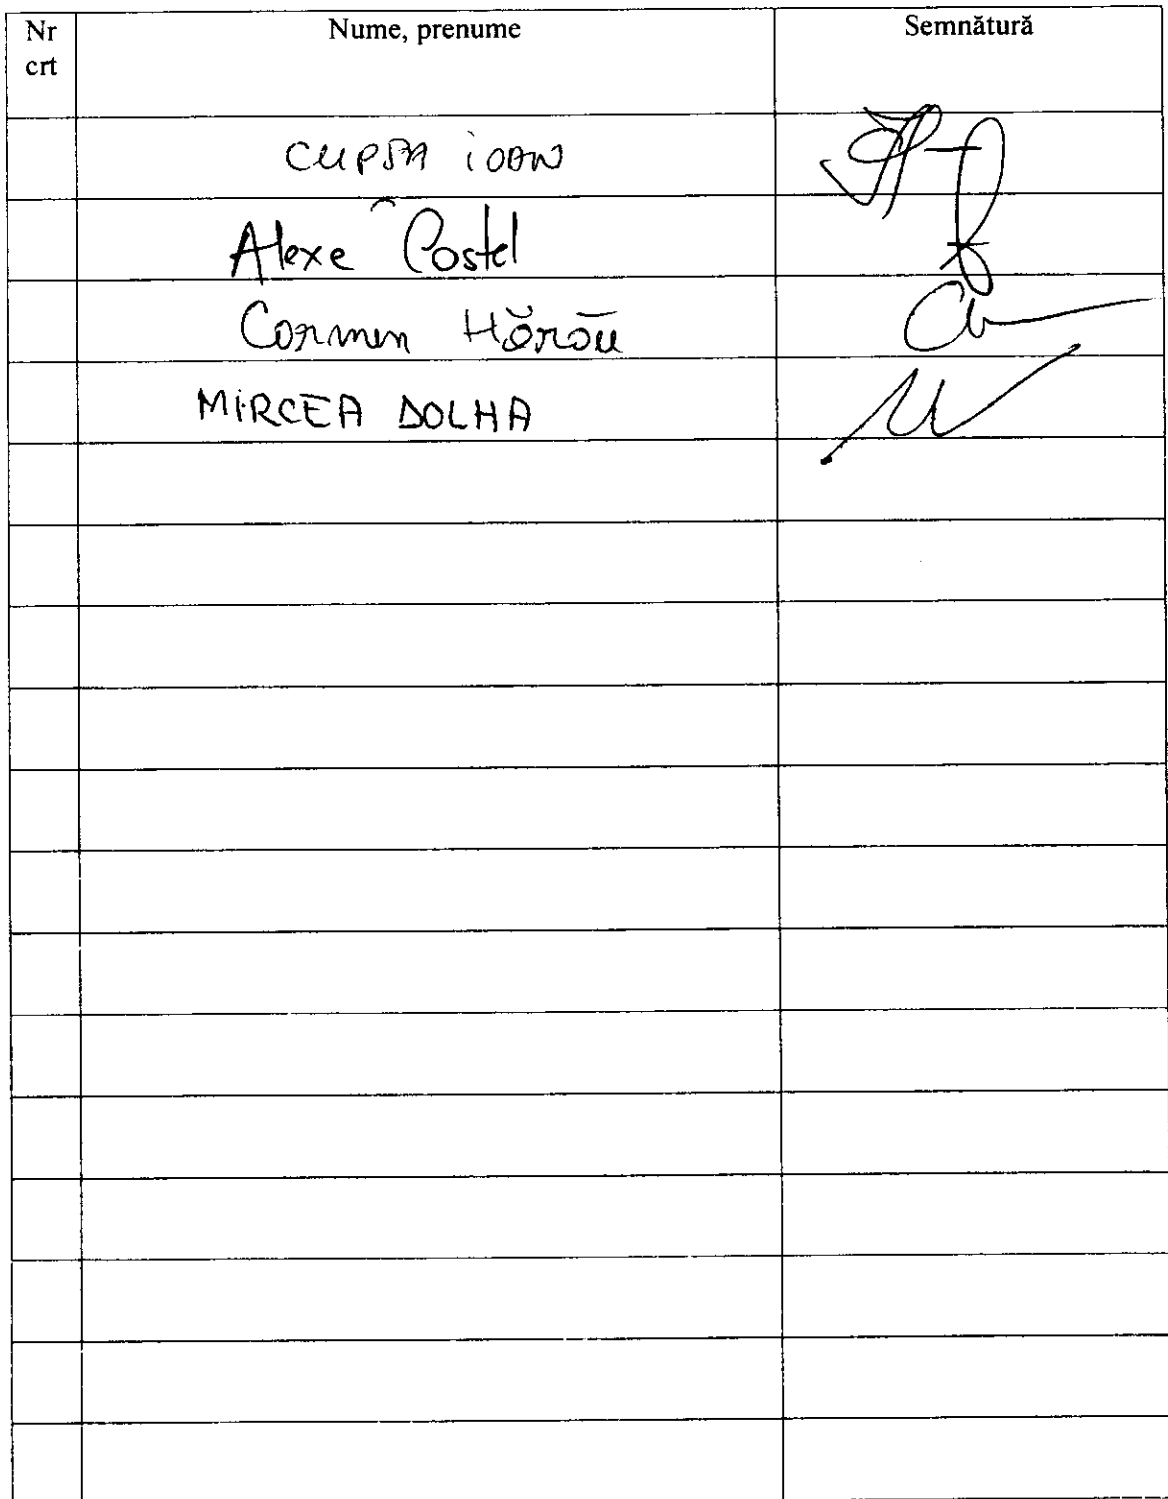 Nr crt Nume, prenume Semnătură
CUPSA IOAN
Alexe Costel
Carmen Hărău
MIRCEA DOLHA